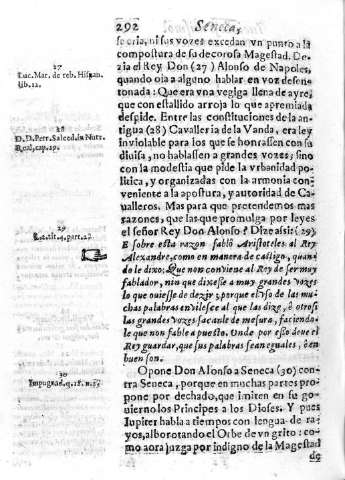 292 Seneca,
se cria, ni sus vozes excedan vn punto a la
compostura de su decorosa Magestad. De-
zia el Rey Don (27) Alonso de Napoles,
quando oia a alguno hablar en voz desen-
tonada: Que era vna vegiga llena de ayre,
que con estallido arroja lo que apremiada
despide. Entre las constituciones de la an-
tigua (28) Cavalleria de la Vanda, era ley
inviolable para los que se honrassen con su
divisa, no hablassen a grandes vozes; sino
con la modestia que pide la vrbanidad po-
litica, y organizadas con la armonia con-
veniente a la apostura, y autoridad de Ca-
valleros. Mas para que pretendemos mas
razones, que las que promulga por leyes
el señor Rey Don Alonso? Dize assi: (29)
E sobre esta razon fabló Aristoteles al Rey
Alexandre, como en manera de castigo, quan-
do le dixo: Que non conviene al Rey de ser muy
fablador, nin que dixesse a muy grandes vozes
lo que ouiesse de dezir; porque el vso de las mu-
chas palabras envilesce al que las dize, è otrosi
las grandes vozes sacanle de mesura, faciendo-
le que non fable apuesto. Onde por esto deve el
Rey guardar, que sus palabras sean eguales, è en
buen son.
Opone Don Alonso a Seneca (30) con-
tra Seneca, porque en muchas partes pro-
pone por dechado, que imiten en su go-
uierno los Principes a los Dioses. Y pues
Iupiter habla a tiempos con lengua de ra-
yos, alborotando el Orbe de vn grito: co-
mo aora juzga por indigno de la Magestad
de
27
Luc. Mar. de reb. Hispan.
lib. 12.
28
D. D. Petr. Salced. in Nutr.
Real, cap. 19.
29
L. 2. tit. 4. part. 2.
30
Impugnad. q. 18. n.